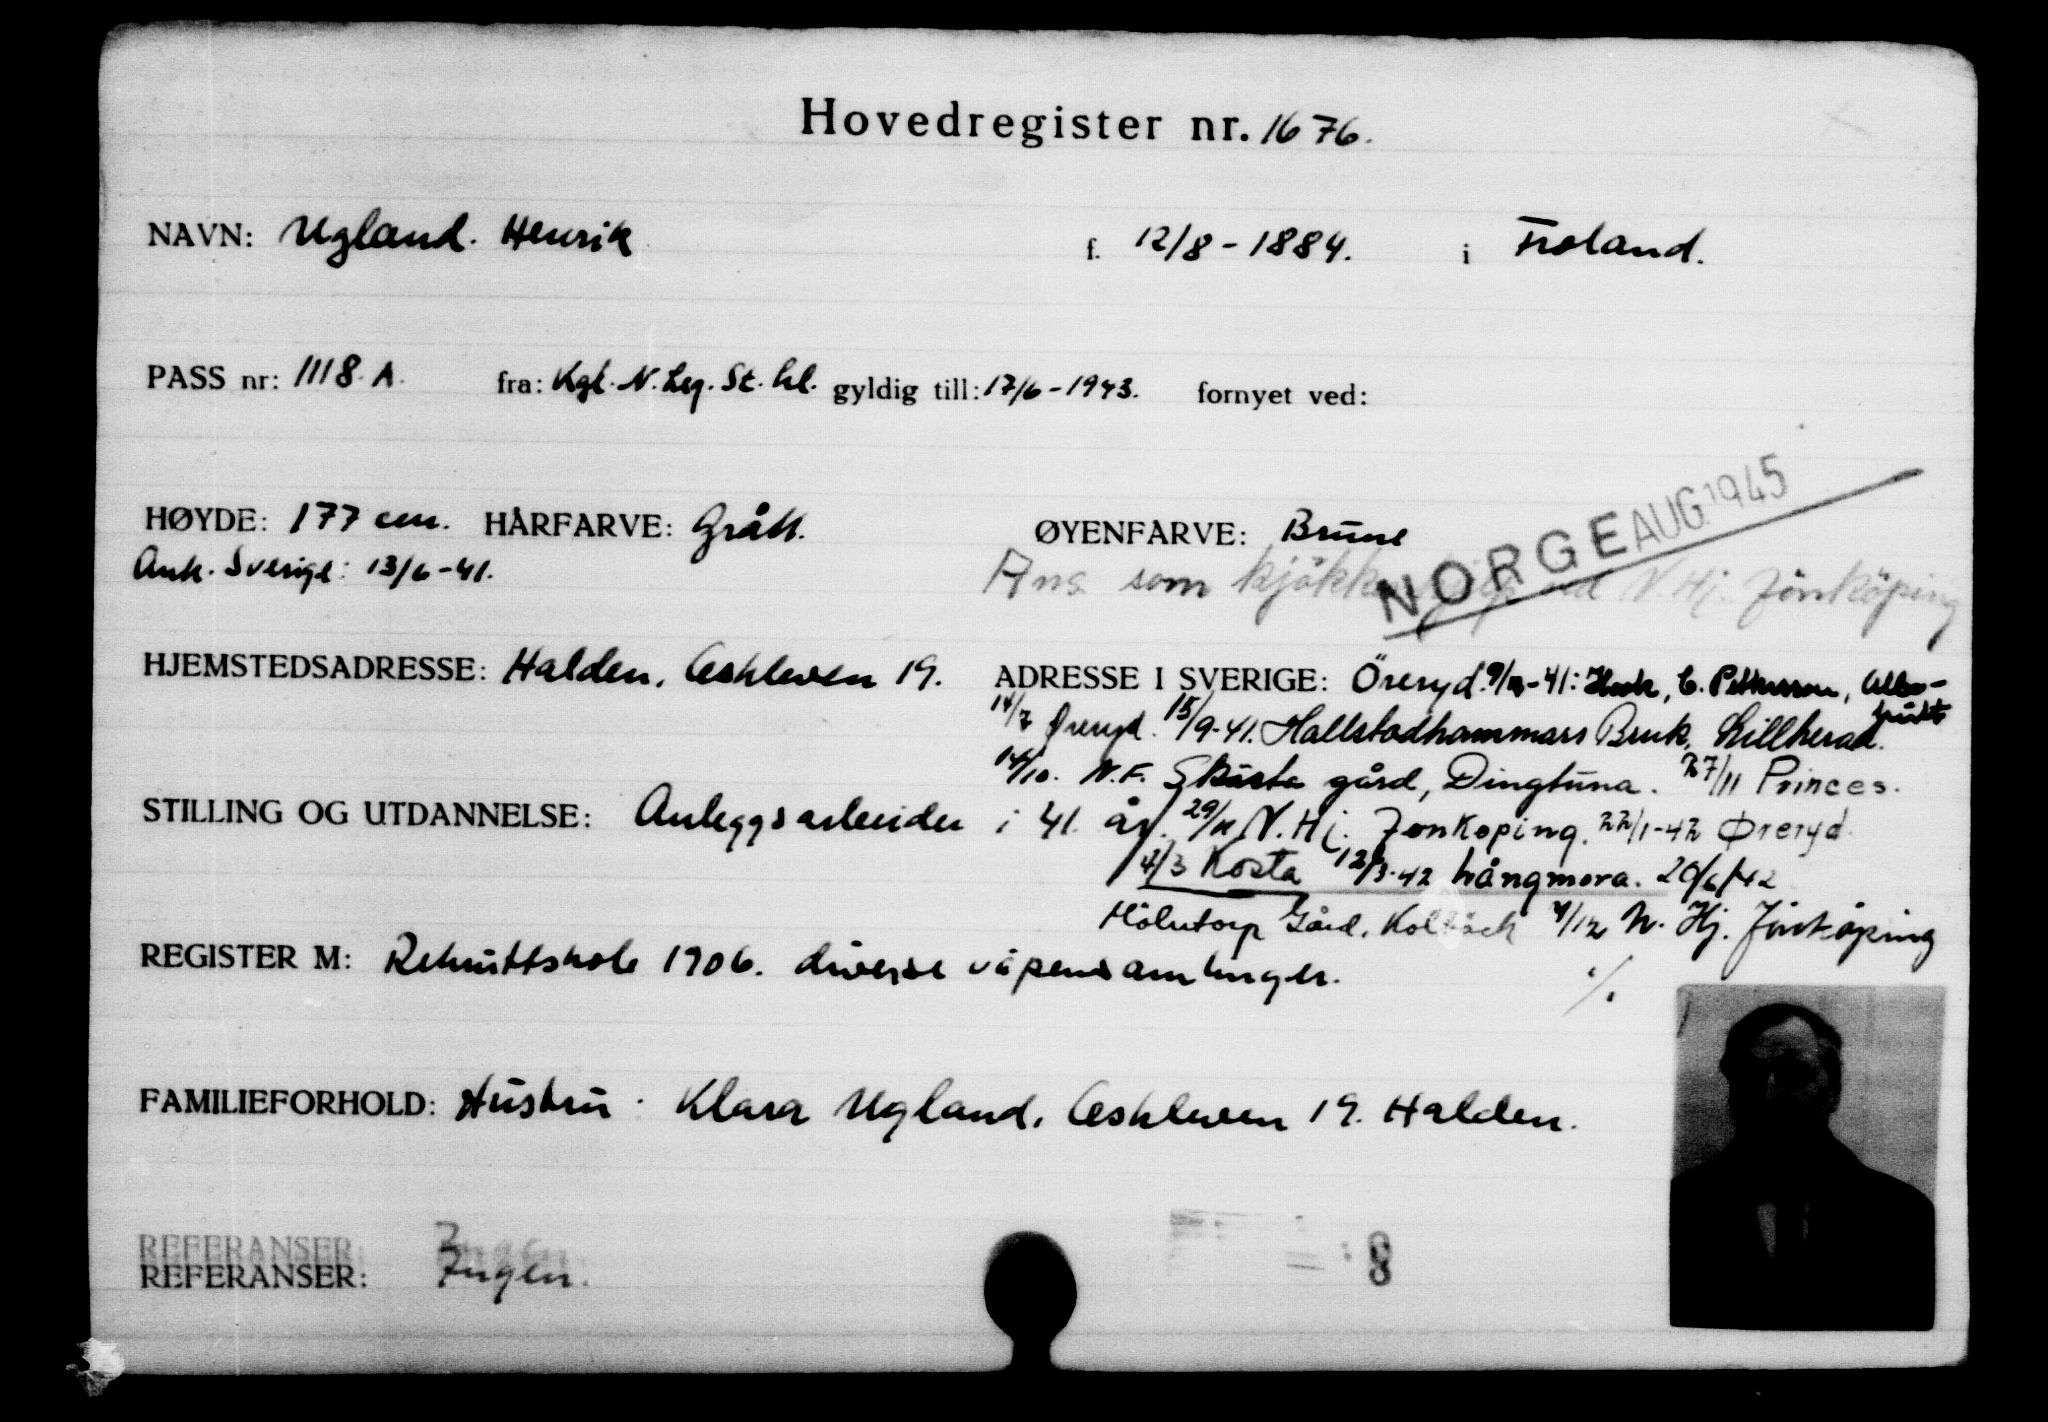 Hovedregister nr. 1676.
NAVN: Ugland. Henrik f. 12/8 - 1884. i Froland.
PASS nr: 1118. A. fra: Kgl. N. Leg. St. hl. gyldig till: 17/6 - 1943. fornyet ved:
NORGE AUG. 1945
HØYDE: 177 cm. HÅRFARVE: Grått. ØYENFARVE: Brune
Ank. Sverige: 13/6 - 41. Ans som kjökkenhjelp ved N. Hj. Jönköping
HJEMSTEDSADRESSE: Halden, Askleven 19. ADRESSE I SVERIGE: Öreryd. -41: C. Pettersson,
14/7 Øreryd. 15/9-41. Hallstadhammars Bruk, Lillherad.
14/10. N.F. Skusta gård, Dingtuna. 27/11 Princes.
STILLING OG UTDANNELSE: Anleggsarbeider i 41. år. 29/11 N. Hj. Jonkoping. 22/1-42 Øreryd.
4/3 Kosta 12/3-42 Långmora. 20/6/42
Gård, Kolbäck 4/12 N. Hj. Jönköping
REGISTER M: Rekruttskole 1906. diverse våpensamlinger. ./.
FAMILIEFORHOLD: Hustru: Klara Ugland, Askleven 19. Halden.
REFERANSER
REFERANSER: Ingen.
8